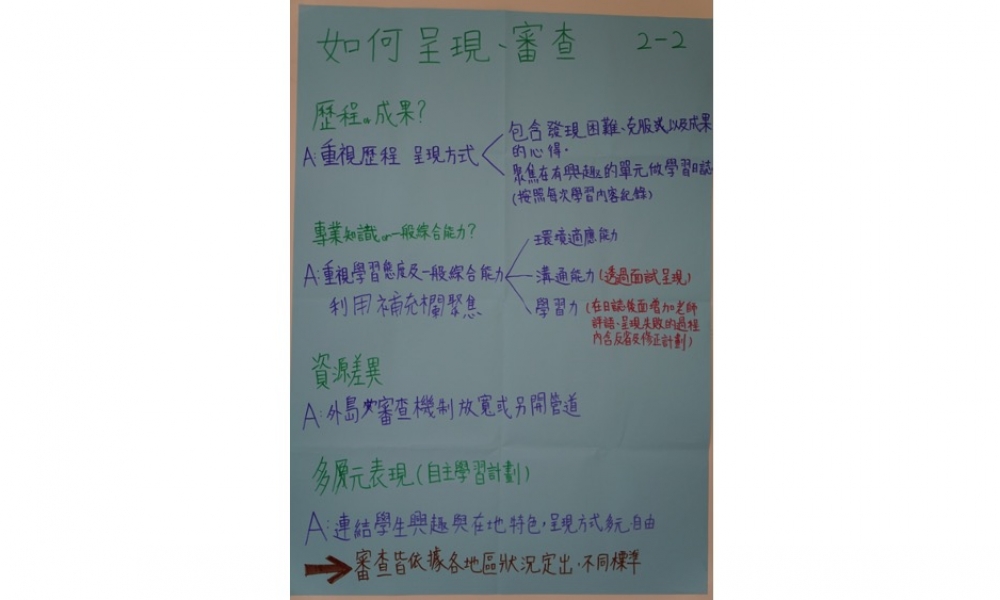 如何呈現、審查 2-2
歷程or成果?
A:重視歷程 呈現方式
包含發現困難、克服或以及成果
的心得.
聚焦在有興趣的單元做學習日誌
(按照每次學習內容紀錄)
專業知識or一般綜合能力?
A:重視學習態度及一般綜合能力
利用補充欄聚焦
環境適應能力
溝通能力(透過面試呈現)
學習力(在日誌後面增加老師
評語、呈現失敗的過程
內含反省及修正計劃)
資源差異
A:外島審查機制放寬或另開管道
多元表現(自主學習計劃)
A:連結學生興趣與在地特色,呈現方式多元.自由
審查皆依據各地區狀況定出.不同標準